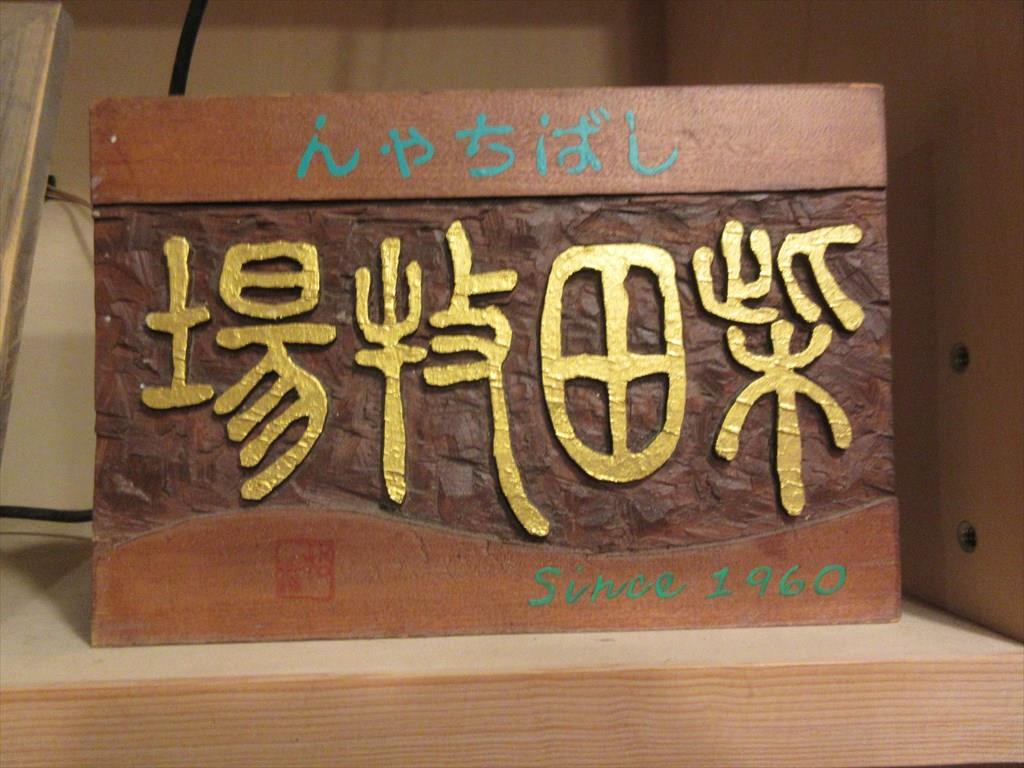 しばちゃん
柴田牧場
Since 1960